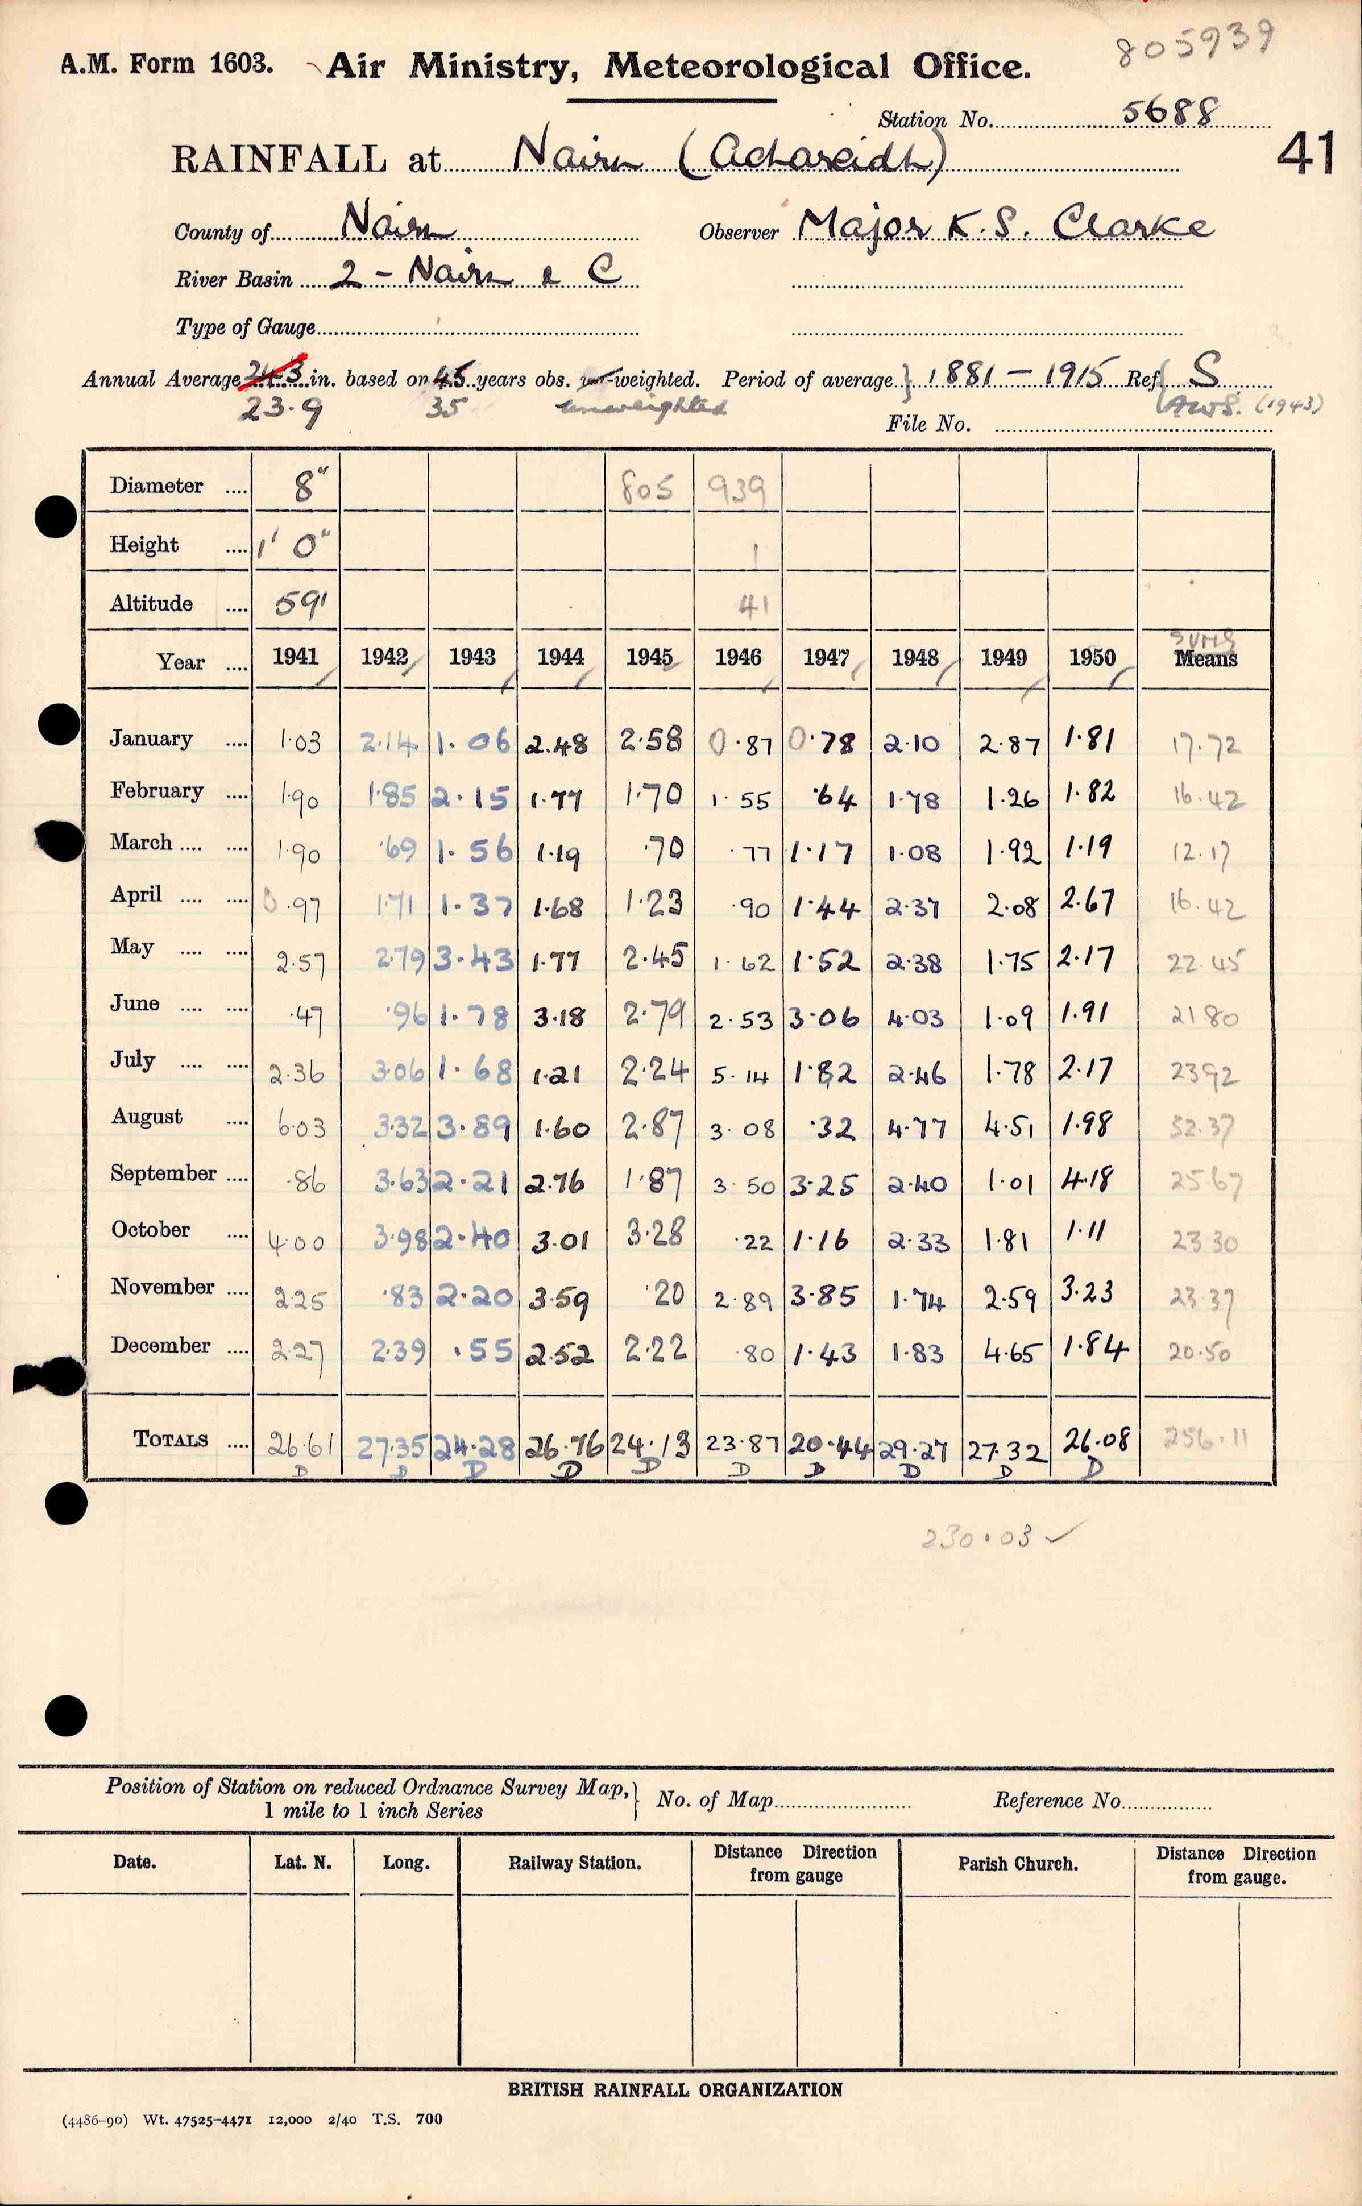 805939
A.M. Form 1603. Air Ministry, Meteorological Office.
Station No. 5688
41
RAINFALL at Nairn (Achareidh)
County of Nairn Observer Major K.S. Clarke
River Basin 2 - Nairn & C
Type of Gauge
Annual Average 24.3 in. based on 45 years obs. weighted. Period of average } 1881 - 1915 Ref { S
23.9 35 unweighted A.W.S. (1943)
File No.
Diameter .... 8" 805 939
Height .... 1' 0" 1
Altitude .... 59' 41
SUMS
Year .... 1941 1942 1943 1944 1945 1946 1947 1948 1949 1950 Means
January .... 1.03 2.14 1.06 2.48 2.58 0.87 0.78 2.10 2.87 1.81 17.72
February .... 1.90 1.85 2.15 1.77 1.70 1.55 .64 1.78 1.26 1.82 16.42
March .... .... 1.90 .69 1.56 1.19 .70 .77 1.17 1.08 1.92 1.19 12.17
April .... .... 0.97 1.71 1.37 1.68 1.23 .90 1.44 2.37 2.08 2.67 16.42
May .... .... 2.57 2.79 3.43 1.77 2.45 1.62 1.52 2.38 1.75 2.17 22.45
June .... .... .47 .96 1.78 3.18 2.79 2.53 3.06 4.03 1.09 1.91 21 80
July .... .... 2.36 3.06 1.68 1.21 2.24 5.14 1.82 2.46 1.78 2.17 23 92
August .... 6.03 3.32 3.89 1.60 2.87 3.08 .32 4.77 4.51 1.98 32.37
September .... .86 3.63 2.21 2.76 1.87 3.50 3.25 2.40 1.01 4.18 25.67
October .... 4.00 3.98 2.40 3.01 3.28 .22 1.16 2.33 1.81 1.11 23 30
November .... 2.25 .83 2.20 3.59 .20 2.89 3.85 1.74 2.59 3.23 23.37
December .... 2.27 2.39 .55 2.52 2.22 .80 1.43 1.83 4.65 1.84 20.50
TOTALS .... 26.61 27.35 24.28 26.76 24.13 23.87 20.44 29.27 27.32 26.08 256.11
D D D D D D D D D D
230.03 ✓
Position of Station on reduced Ordnance Survey Map, } No. of Map Reference No.
1 mile to 1 inch Series
Date. Lat. N. Long. Railway Station. Distance Direction from gauge Parish Church. Distance Direction from gauge.
BRITISH RAINFALL ORGANIZATION
(4486-90) Wt. 47525-4471 12,000 2/40 T.S. 700